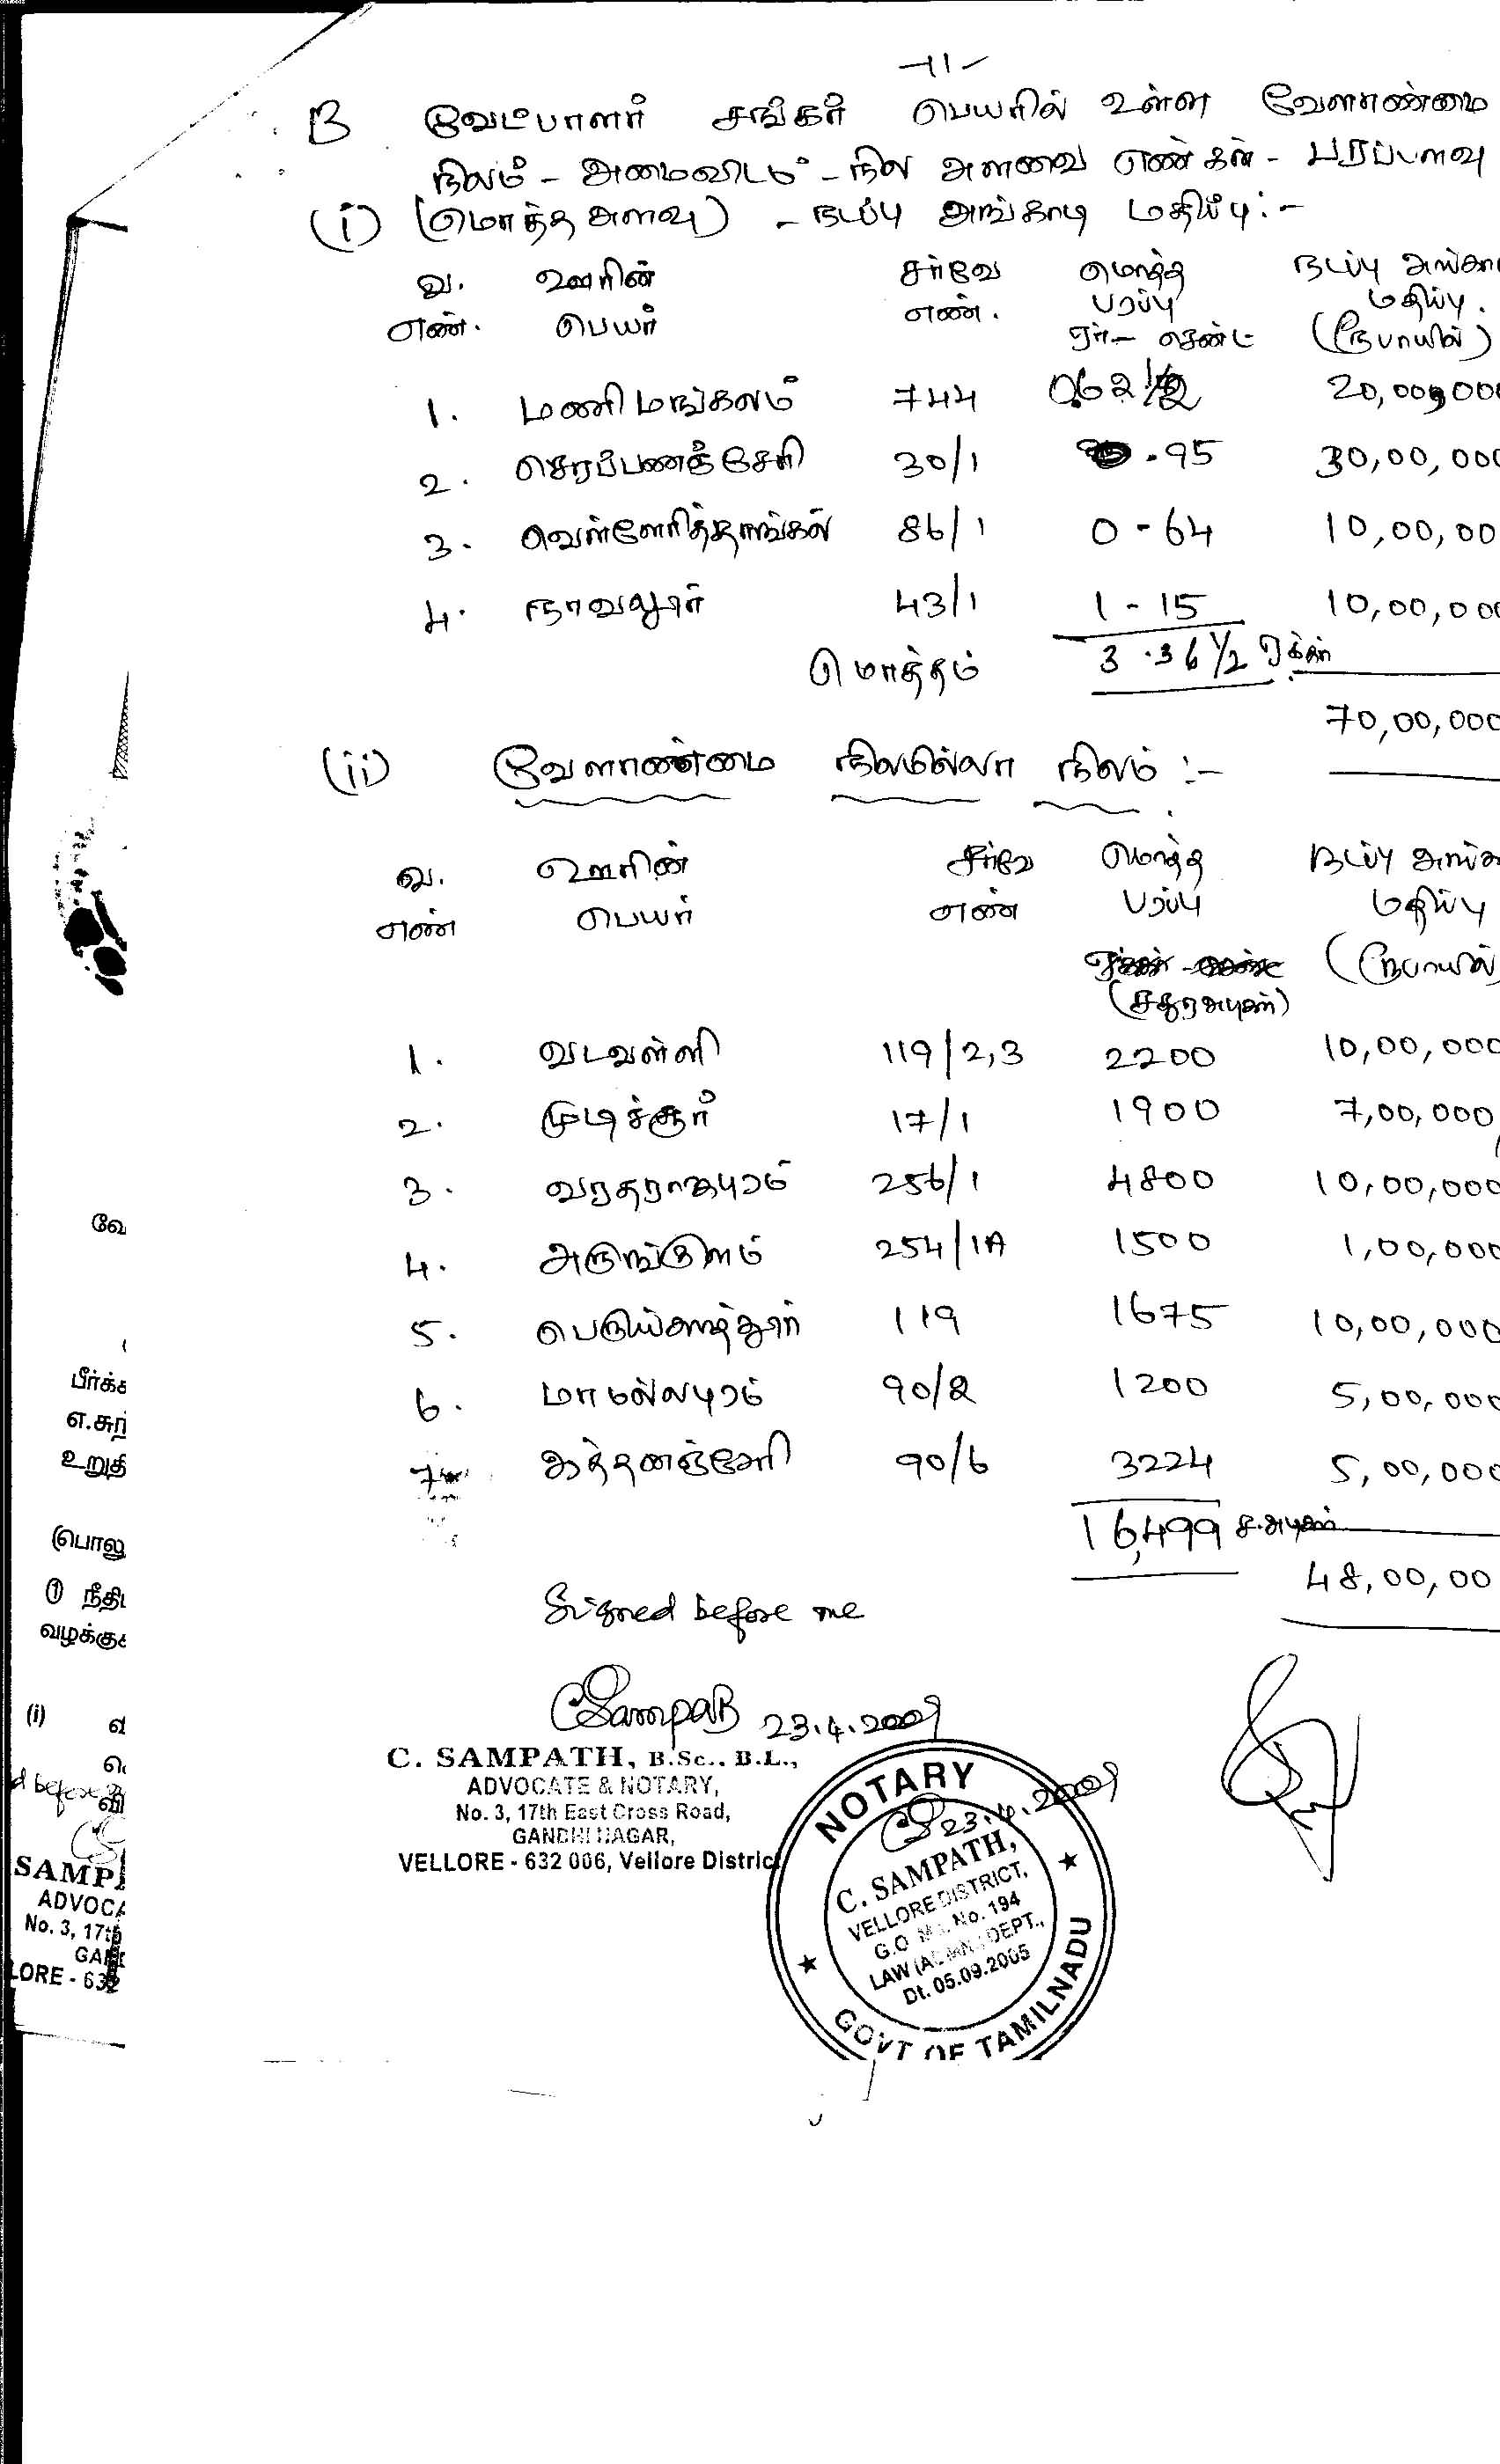 -11-
B வேட்பாளர் சங்கர் பெயரில் உள்ள வேளாண்மை
நிலம் - அமைவிடம் - நில அளவை எண்கள் - பரப்பளவு
(i) (மொத்த அளவு) - நடப்பு அங்காடி மதிப்பு:-
வ. ஊரின் சர்வே மொத்த நடப்பு அங்கா
எண். பெயர் எண். பரப்பு மதிப்பு.
ஏர் - செண்ட் (ரூபாயில்)
1. மணிமங்கலம் 744 0.62 1/2 20,00,000
2. செரப்பணஞ்சேரி 30/1 .95 30,00,000
3. வெள்ளேரித்தாங்கல் 86/1 0-64 10,00,00
4. நாவலூர் 43/1 1-15 10,00,000
மொத்தம் 3.36 1/2 ஏக்கர்
70,00,000
(ii) வேளாண்மை நிலமில்லா நிலம் :-
வ. ஊரின் சர்வே மொத்த நடப்பு அங்க
எண் பெயர் எண் பரப்பு மதிப்பு
(சதுரஅடிகள்) (ரூபாயில்)
1. வடவள்ளி 119/2,3 2200 10,00,000
2. முடிச்சூர் 17/1 1900 7,00,000
3. வரதராஜபுரம் 256/1 4800 10,00,000
4. அருங்குளம் 254/1A 1500 1,00,000
5. 119 1675 10,00,000
6. மாமல்லபுரம் 90/2 1200 5,00,000
7. கத்தனஞ்சேரி 90/6 3224 5,00,000
16,499 ச.அடிகள்
48,00,00
Signed before me
CSampath 23.4.2009
C. SAMPATH, B.Sc., B.L.,
ADVOCATE & NOTARY,
No. 3, 17th East Cross Road,
GANDHI NAGAR,
VELLORE - 632 006, Vellore District
NOTARY
23.4.2009
C. SAMPATH,
VELLORE DISTRICT,
G.O. Ms. No. 194
LAW (ADMN.) DEPT.,
Dt. 05.09.2005
GOVT OF TAMILNADU
வே
பீர்க்க
எ.சுற்
உறுதி
(பொலு
① நீதிப
வழக்குக
(i) வி
d before
வி
SAMP
ADVOCA
No. 3, 17th
GAN
LORE - 632